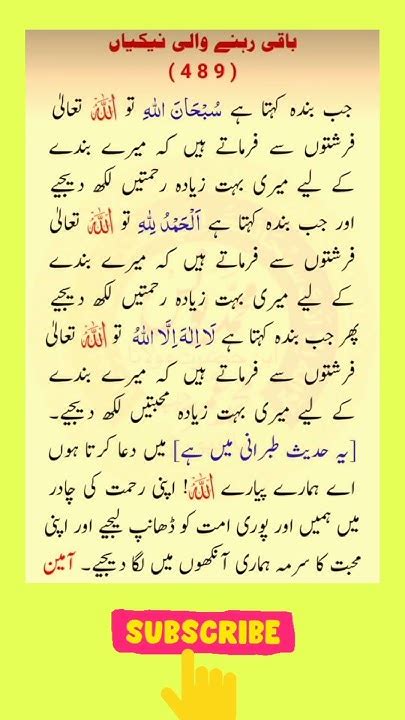 باقی رہنے والی نیکیاں
(489)
جب بندہ کہتا ہے سُبْحَانَ اللهِ تو اَللّٰهُ تعالیٰ
فرشتوں سے فرماتے ہیں کہ میرے بندے
کے لیے میری بہت زیادہ رحمتیں لکھ دیجیے
اور جب بندہ کہتا ہے اَلْحَمْدُ لِلّٰهِ تو اَللّٰهُ تعالیٰ
فرشتوں سے فرماتے ہیں کہ میرے بندے
کے لیے میری بہت زیادہ رحمتیں لکھ دیجیے
پھر جب بندہ کہتا ہے لَا اِلٰهَ اِلَّا اللهُ تو اَللّٰهُ تعالیٰ
فرشتوں سے فرماتے ہیں کہ میرے بندے
کے لیے میری بہت زیادہ محبتیں لکھ دیجیے۔
[یہ حدیث طبرانی میں ہے] میں دعا کرتا ہوں
اے ہمارے پیارے اَللّٰهُ! اپنی رحمت کی چادر
میں ہمیں اور پوری امت کو ڈھانپ لیجیے اور اپنی
محبت کا سرمہ ہماری آنکھوں میں لگا دیجیے۔ آمین
SUBSCRIBE